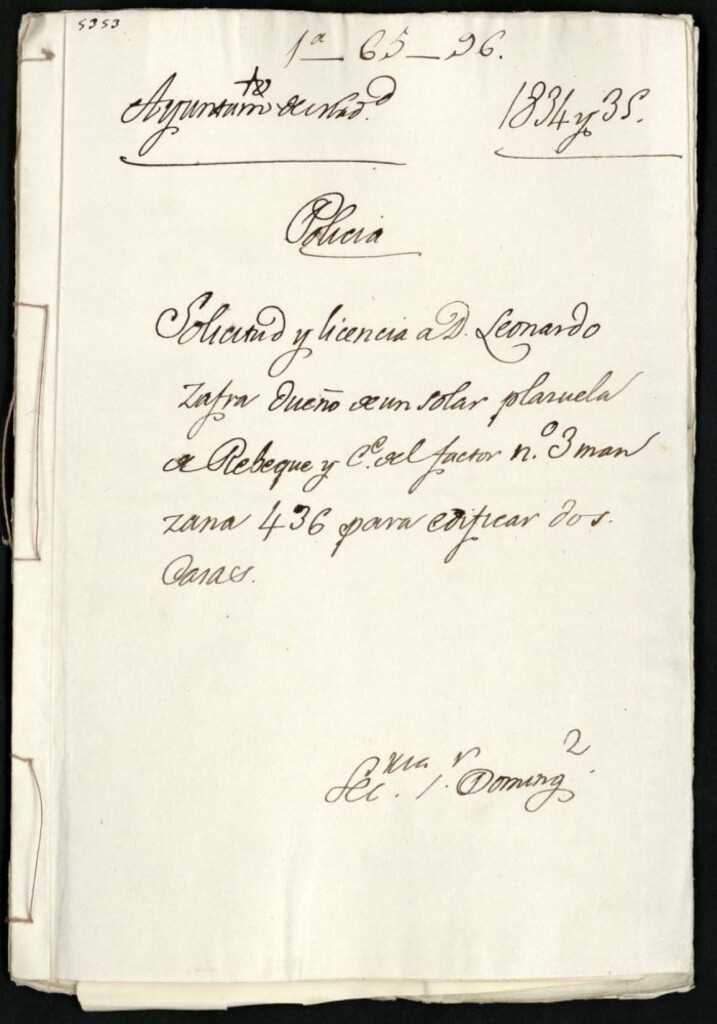 5353
1ª — 65 — 96.
Ayuntamto de Madd. 1834 y 35.
Policia
Solicitud y licencia a D. Leonardo
Zafra dueño de un solar plazuela
de Rebeque y Ce. del factor n.º 3 man
zana 436 para edificar dos.
Casas.
Secria. Sr. Domingz.